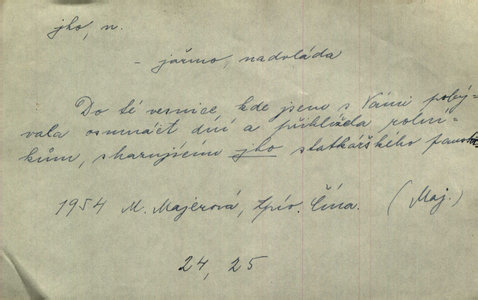 jho, n.
- jařmo, nadvláda
Do té vesnice, kde jsem s Vámi pobý-
vala osmnáct dní a přihlížela rolní-
kům, shazujícím jho statkářského panství
1954 M. Majerová, Zpív. Čína. (Maj.)
24, 25